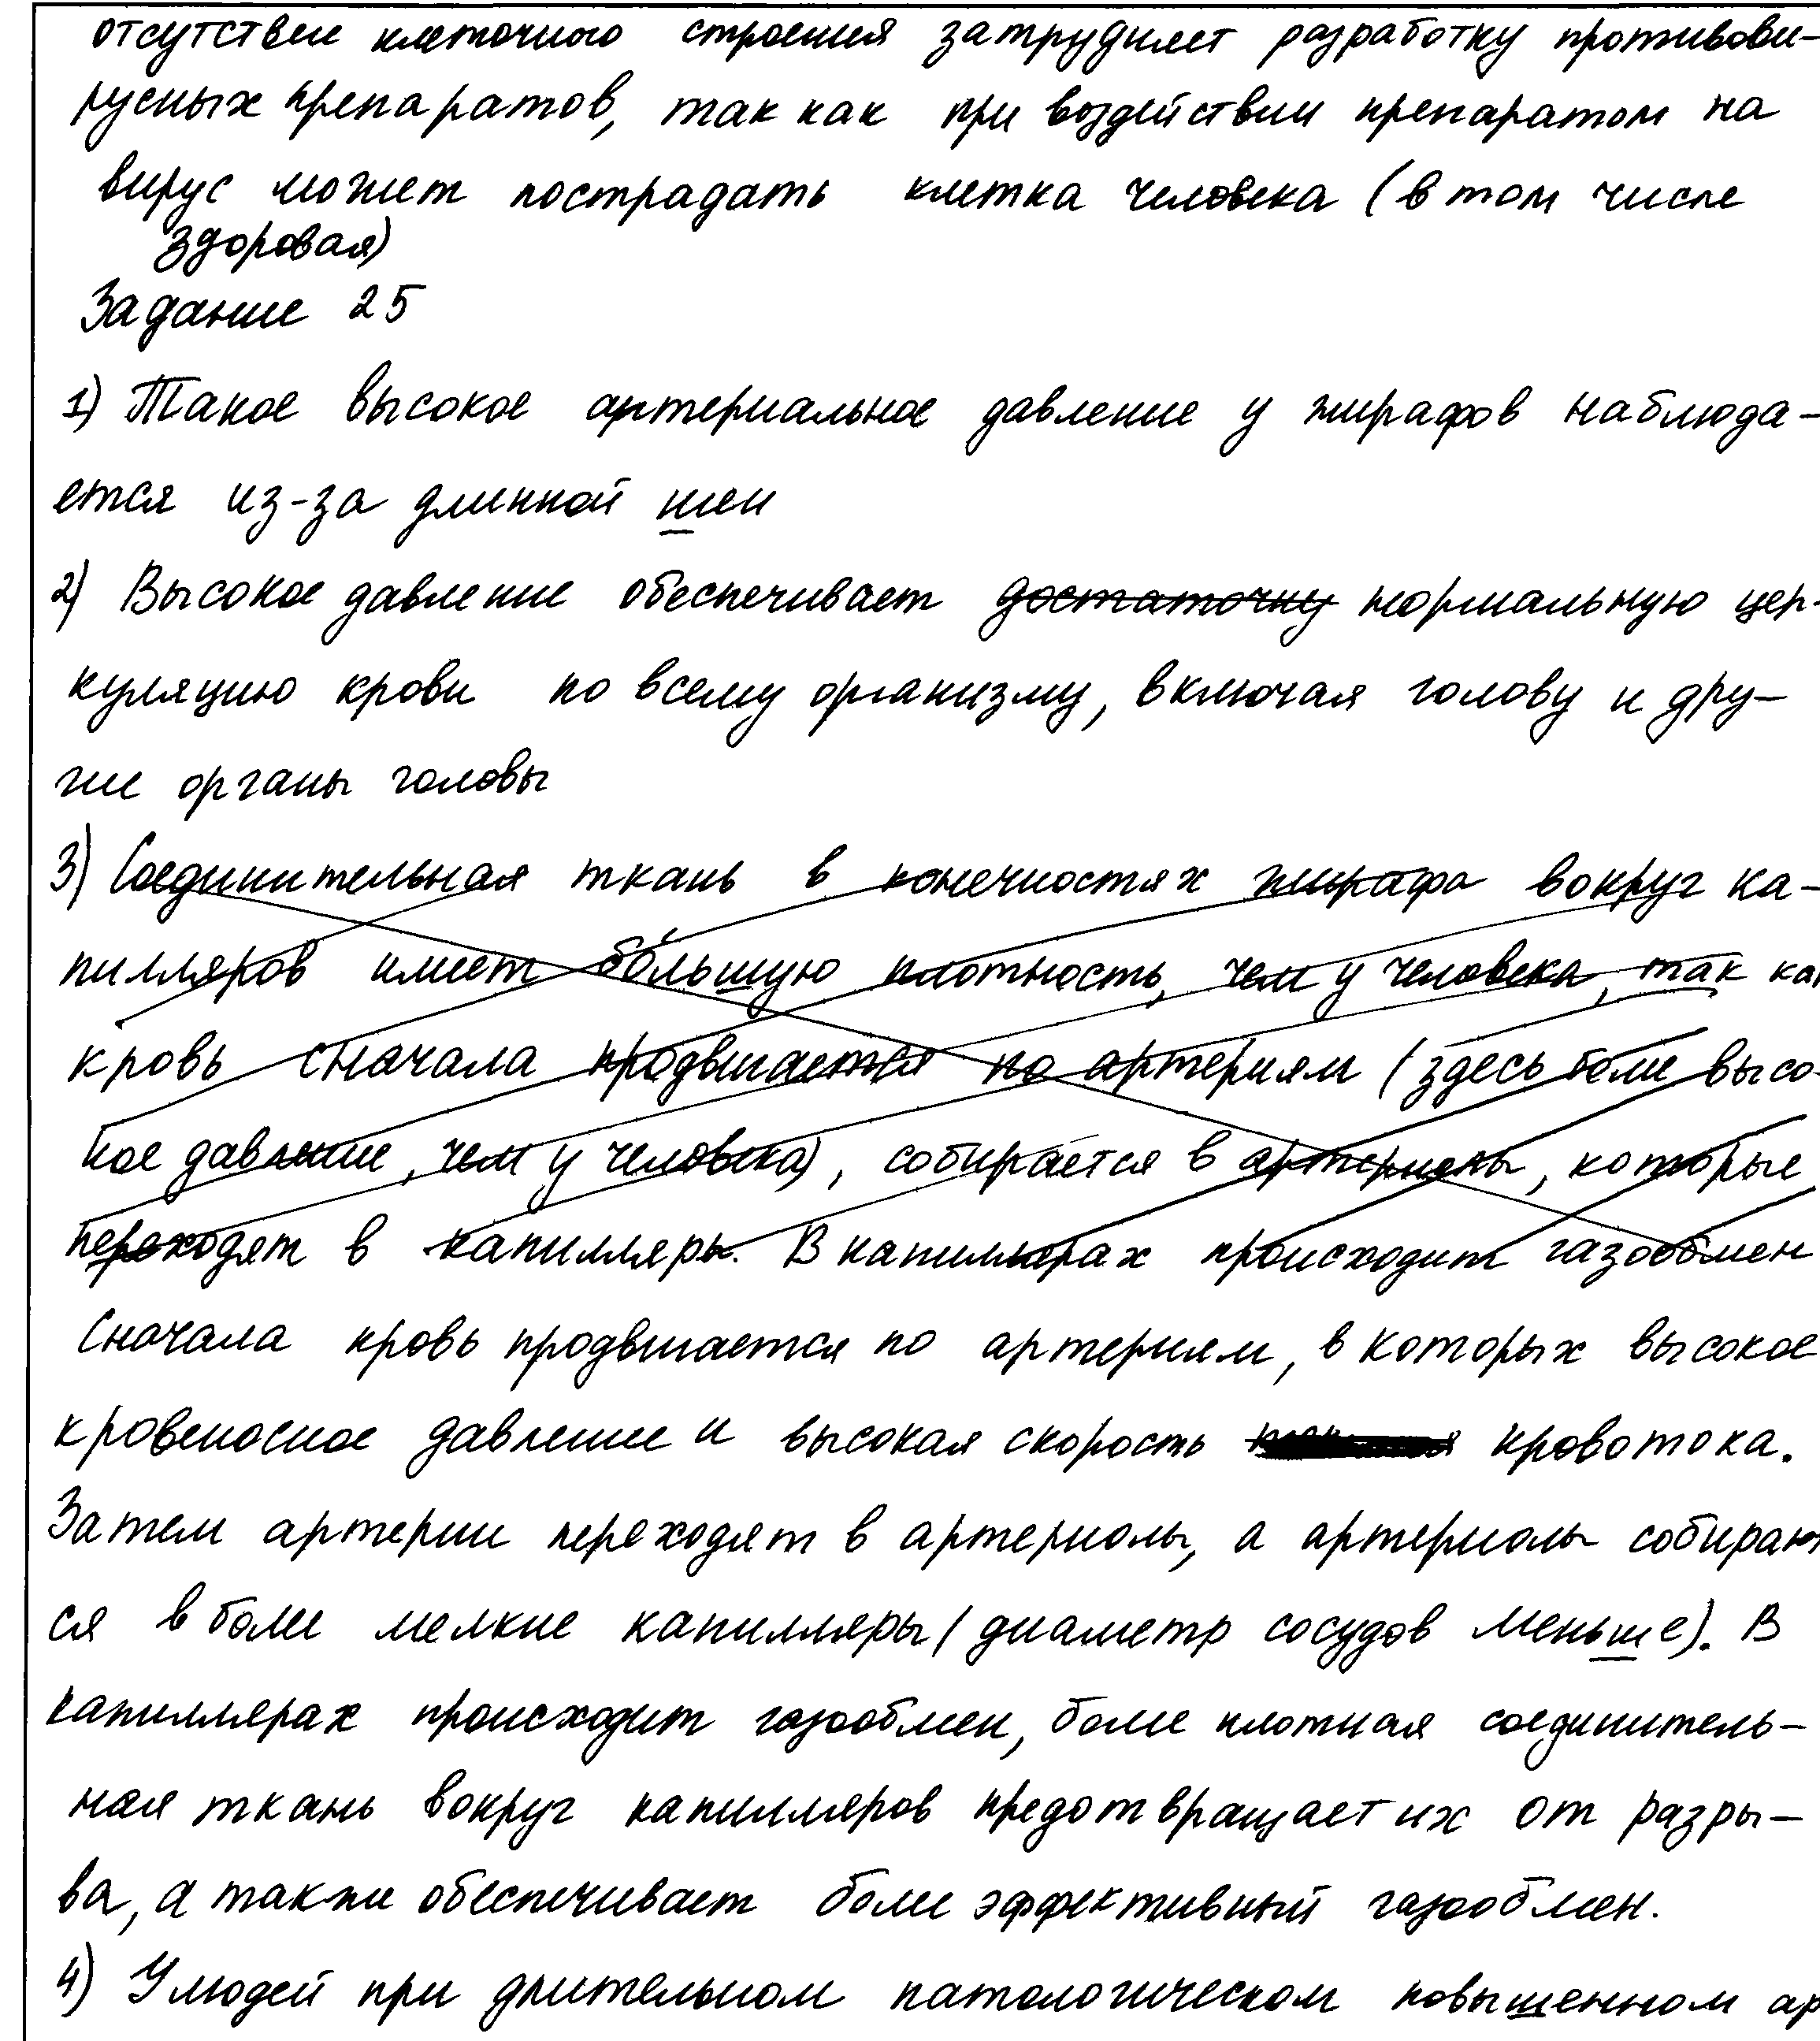 отсутствие клеточного строения затрудняет разработку противови-
русных препаратов, так как при воздействии препаратом на
вирус может пострадать клетка человека (в том числе
здоровая)
Задание 25
1) Такое высокое артериальное давление у жирафов наблюда-
ется из-за длинной шеи
2) Высокое давление обеспечивает достаточну нормальную цер-
куляцию крови по всему организму, включая голову и дру-
гие органы головы
3) Соединительная ткань в конечностях жирафа вокруг ка-
пилляров имеет бо́льшую плотность, чем у человека, так как
кровь сначала продвигается по артериям (здесь более высо-
кое давление, чем у человека), собирается в артериолы, которые
переходят в капилляры. В капиллярах происходит газообмен
Сначала кровь продвигается по артериям, в которых высокое
кровеносное давление и высокая скорость кровотока.
Затем артерии переходят в артериолы, а артериолы собирают
ся в более мелкие капилляры (диаметр сосудов меньше). В
капиллярах происходит газообмен, более плотная соединитель-
ная ткань вокруг капилляров предотвращает их от разры-
ва, а также обеспечивает более эффективный газообмен.
4) У людей при длительном патологическом повышенном ар